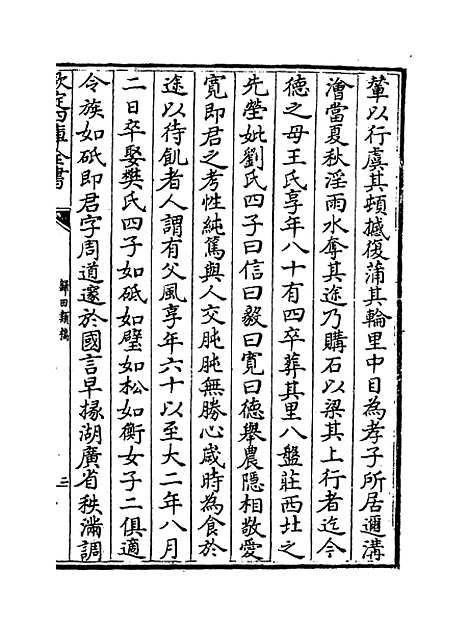 輦以行虞其頓撼復蒲其輪里中目為孝子所居邇溝
澮當夏秋淫雨水奪其途乃購石以梁其上行者迄今
德之母王氏享年八十有四卒葬其里八盤莊西北之
先塋妣劉氏四子曰信曰毅曰寛曰德舉農隠相敬愛
寛即君之考性純篤與人交肫肫無勝心歲時為食於
途以待飢者人謂有父風享年六十以至大二年八月
二日卒娶樊氏四子如砥如璧如松如衡女子二俱適
令族如砥即君字周道邃於國言早掾湖廣省秩滿調
欽定四庫全書
歸田類稿
三